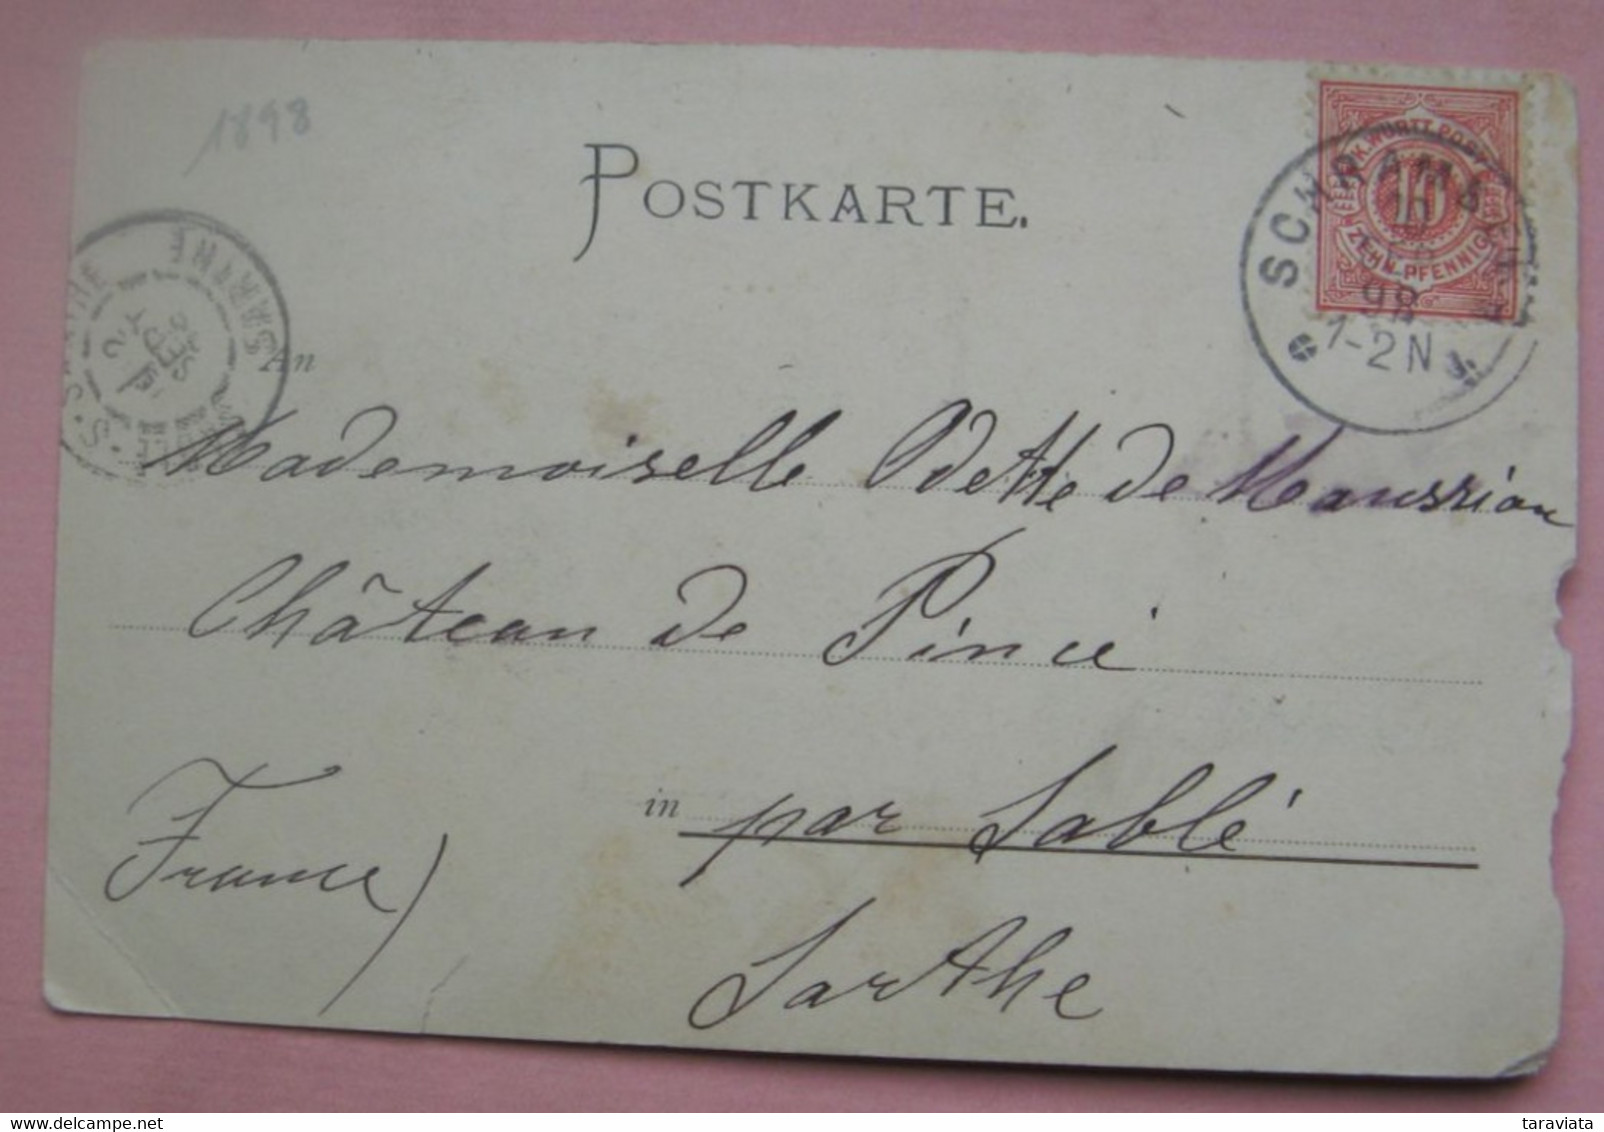 1898
POSTKARTE.
K. WÜRTT. POST
10
ZEHN PFENNIG
98
1-2 N
SEPT
An
Mademoiselle Odette de Maussion
Château de Pincé
in par Sablé
France)
Sarthe
delcampe.net
taraviata